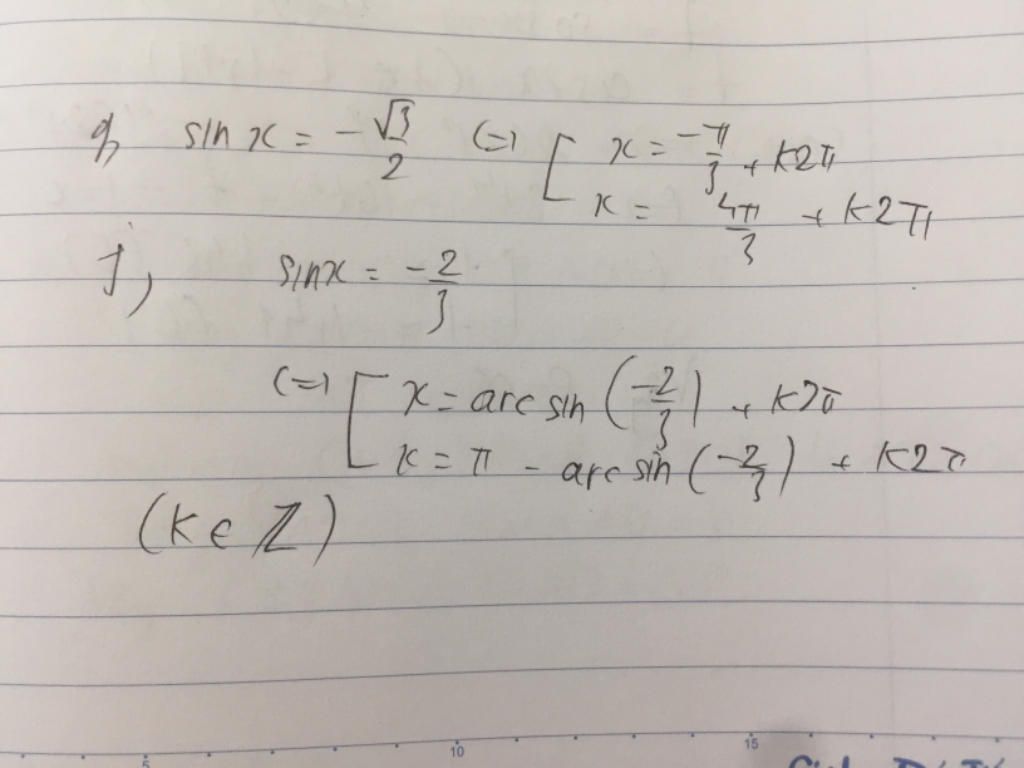 sin x = -√3/2 (=) [ x = -π/3 + k2π
x = 4π/3 + k2π
j, sinx = -2/3
(=) [ x = arc sin (-2/3) + k2π
x = π - arc sin (-2/3) + k2π
(k ∈ ℤ)
5 10 15